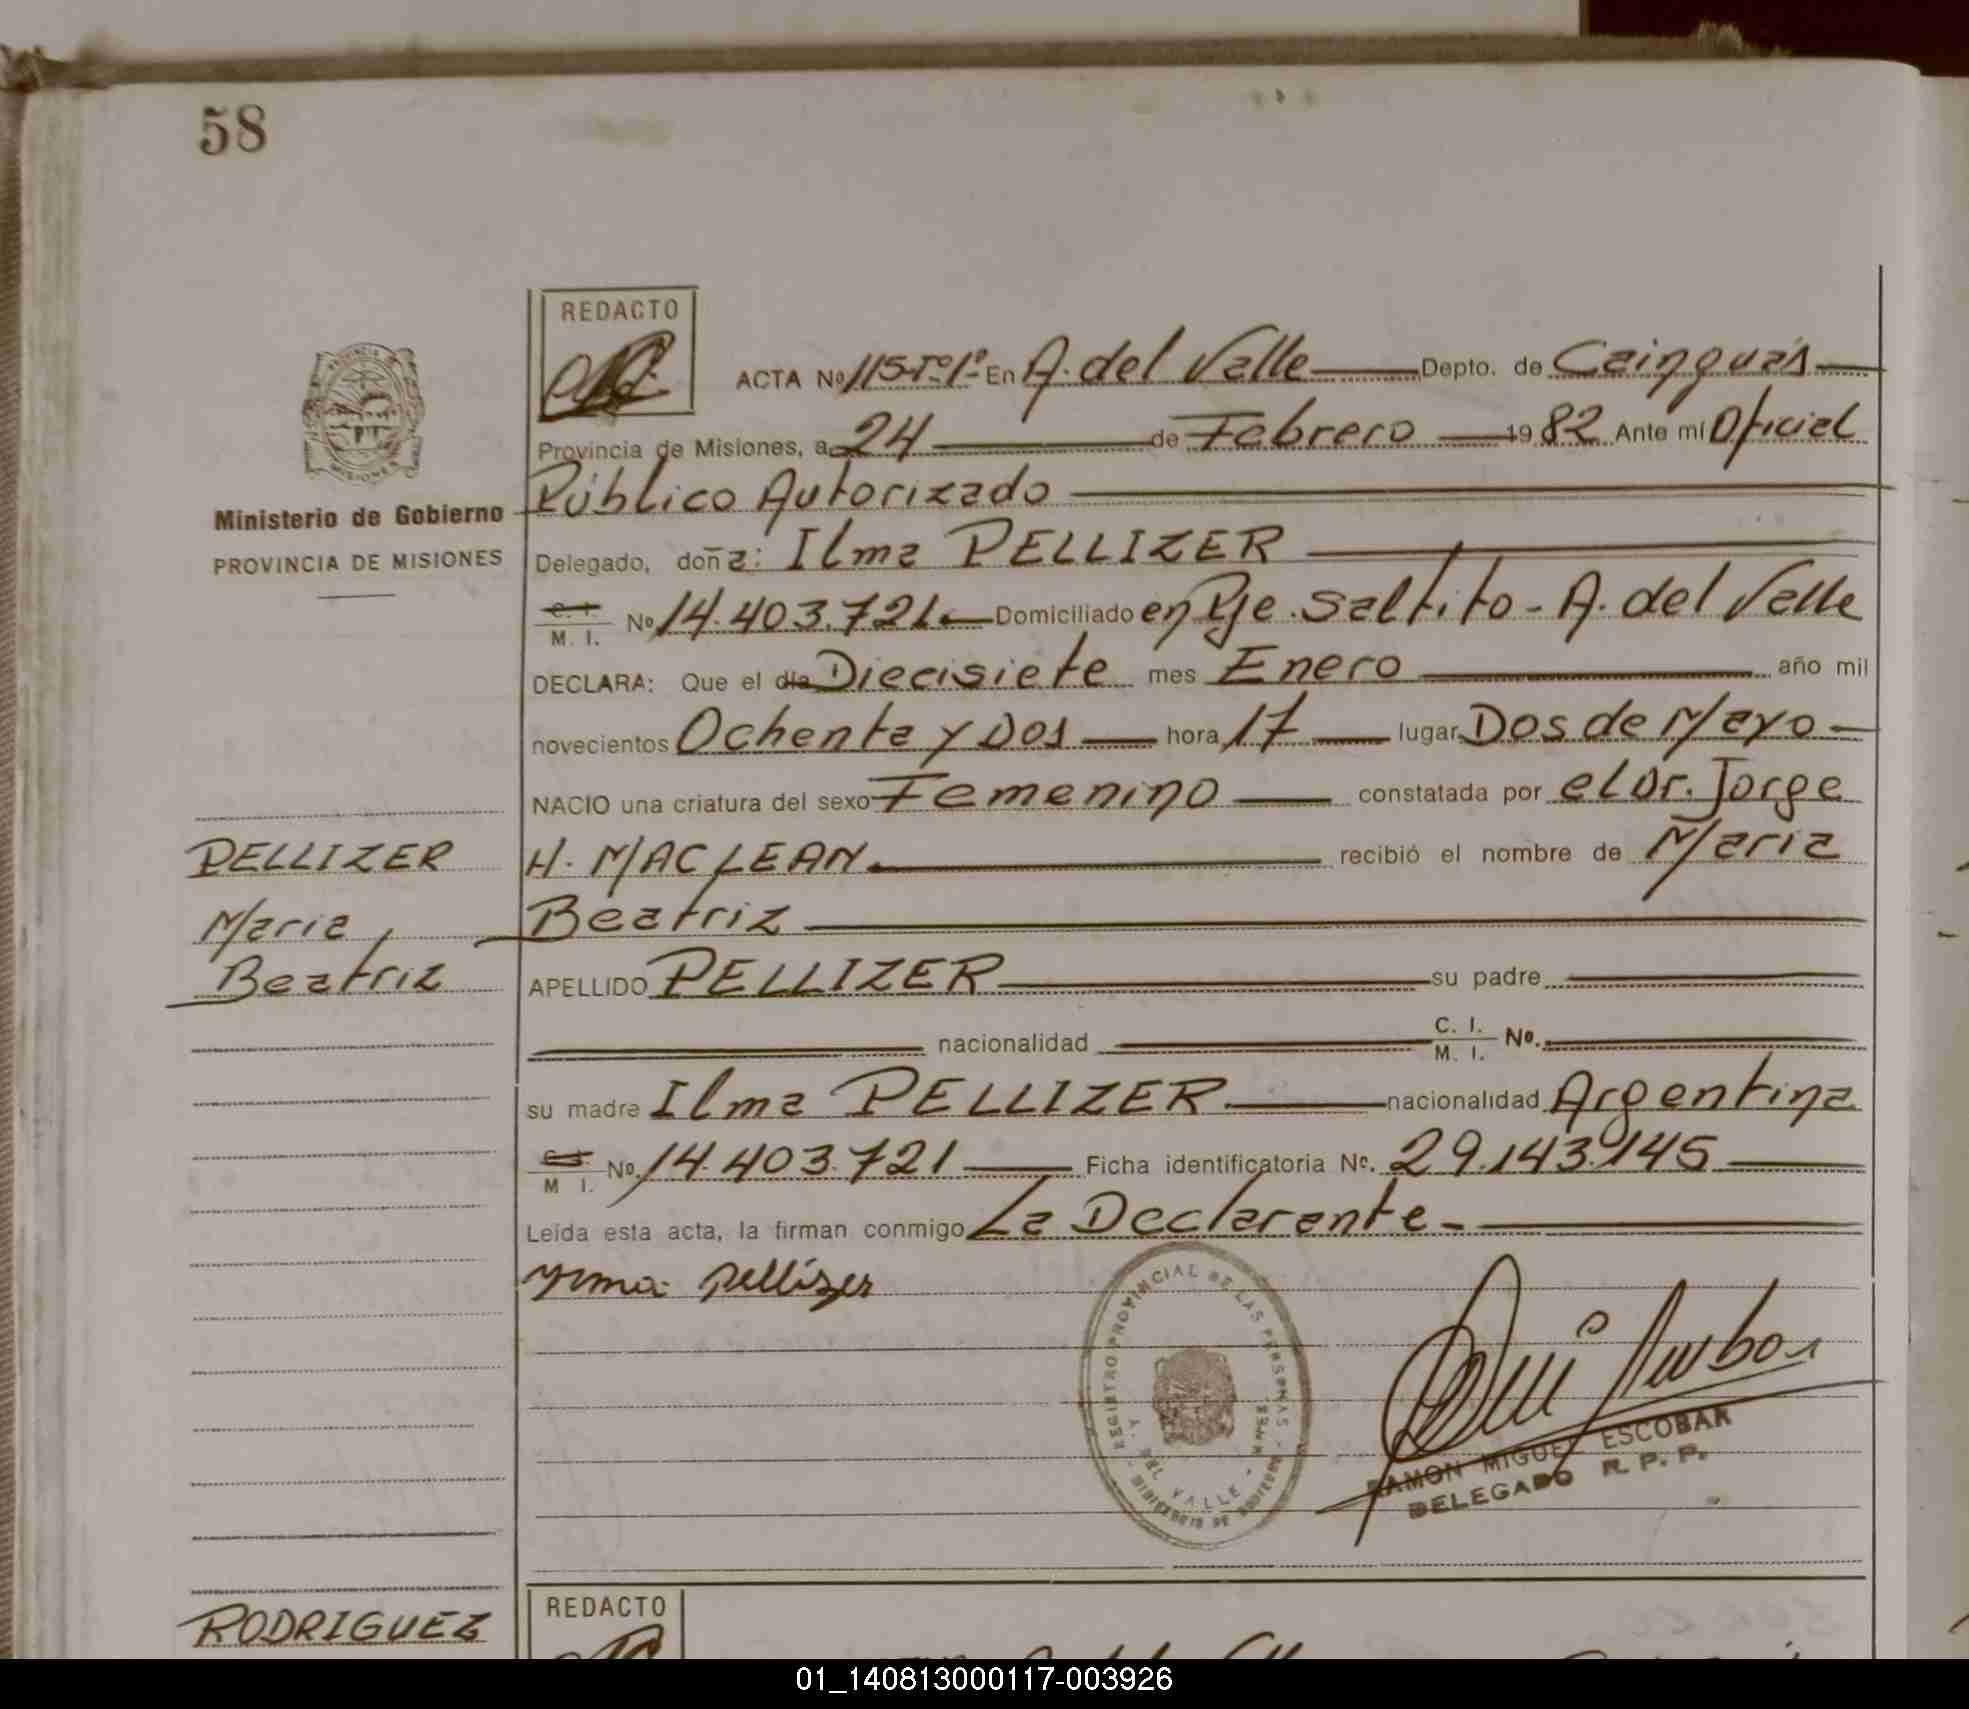 58
REDACTO
ACTA Nº 115-Tº1º- En A. del Valle Depto. de Cainguás
Provincia de Misiones, a 24 de Febrero 1982 Ante mí Oficial
Ministerio de Gobierno
Público Autorizado
PROVINCIA DE MISIONES
Delegado, doña: Ilma PELLIZER
C. I.
M. I. Nº 14.403.721.- Domiciliado en Pje. Saltito - A. del Valle
DECLARA: Que el día Diecisiete mes Enero año mil
novecientos Ochenta y Dos hora 17 lugar Dos de Mayo
NACIO una criatura del sexo Femenino constatada por el Dr. Jorge
PELLIZER
H. MAC LEAN. recibió el nombre de Maria
Maria
Beatriz
Beatriz
APELLIDO PELLIZER su padre
nacionalidad C. I. M. I. Nº.
su madre Ilma PELLIZER. nacionalidad Argentina
M I. Nº 14.403.721 Ficha identificatoria Nº. 29.143.145
Leída esta acta, la firman conmigo La Declarante.-
Ylma Pellizer
REGISTRO PROVINCIAL DE LAS PERSONAS
A. DEL VALLE
MINISTERIO DE GOBIERNO
RAMON MIGUEL ESCOBAR
DELEGADO R. P. P.
REDACTO
RODRIGUEZ
01_140813000117-003926